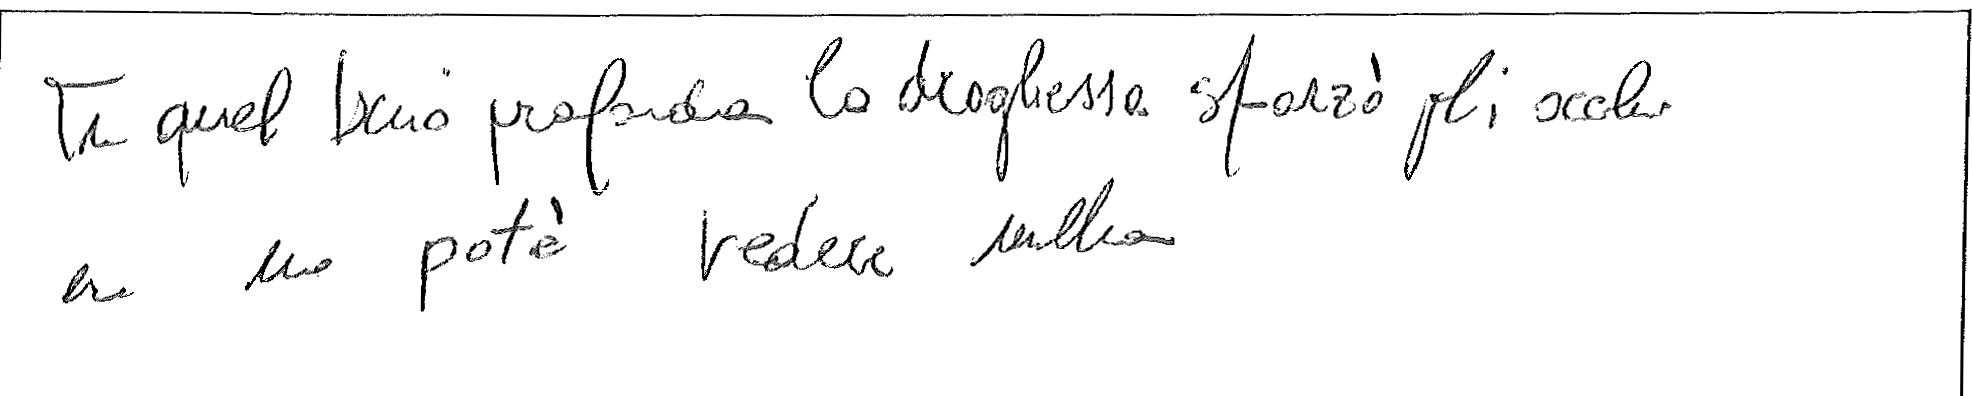 In quel buio profondo la draghessa sforzò gli occhi
potè vedere nulla